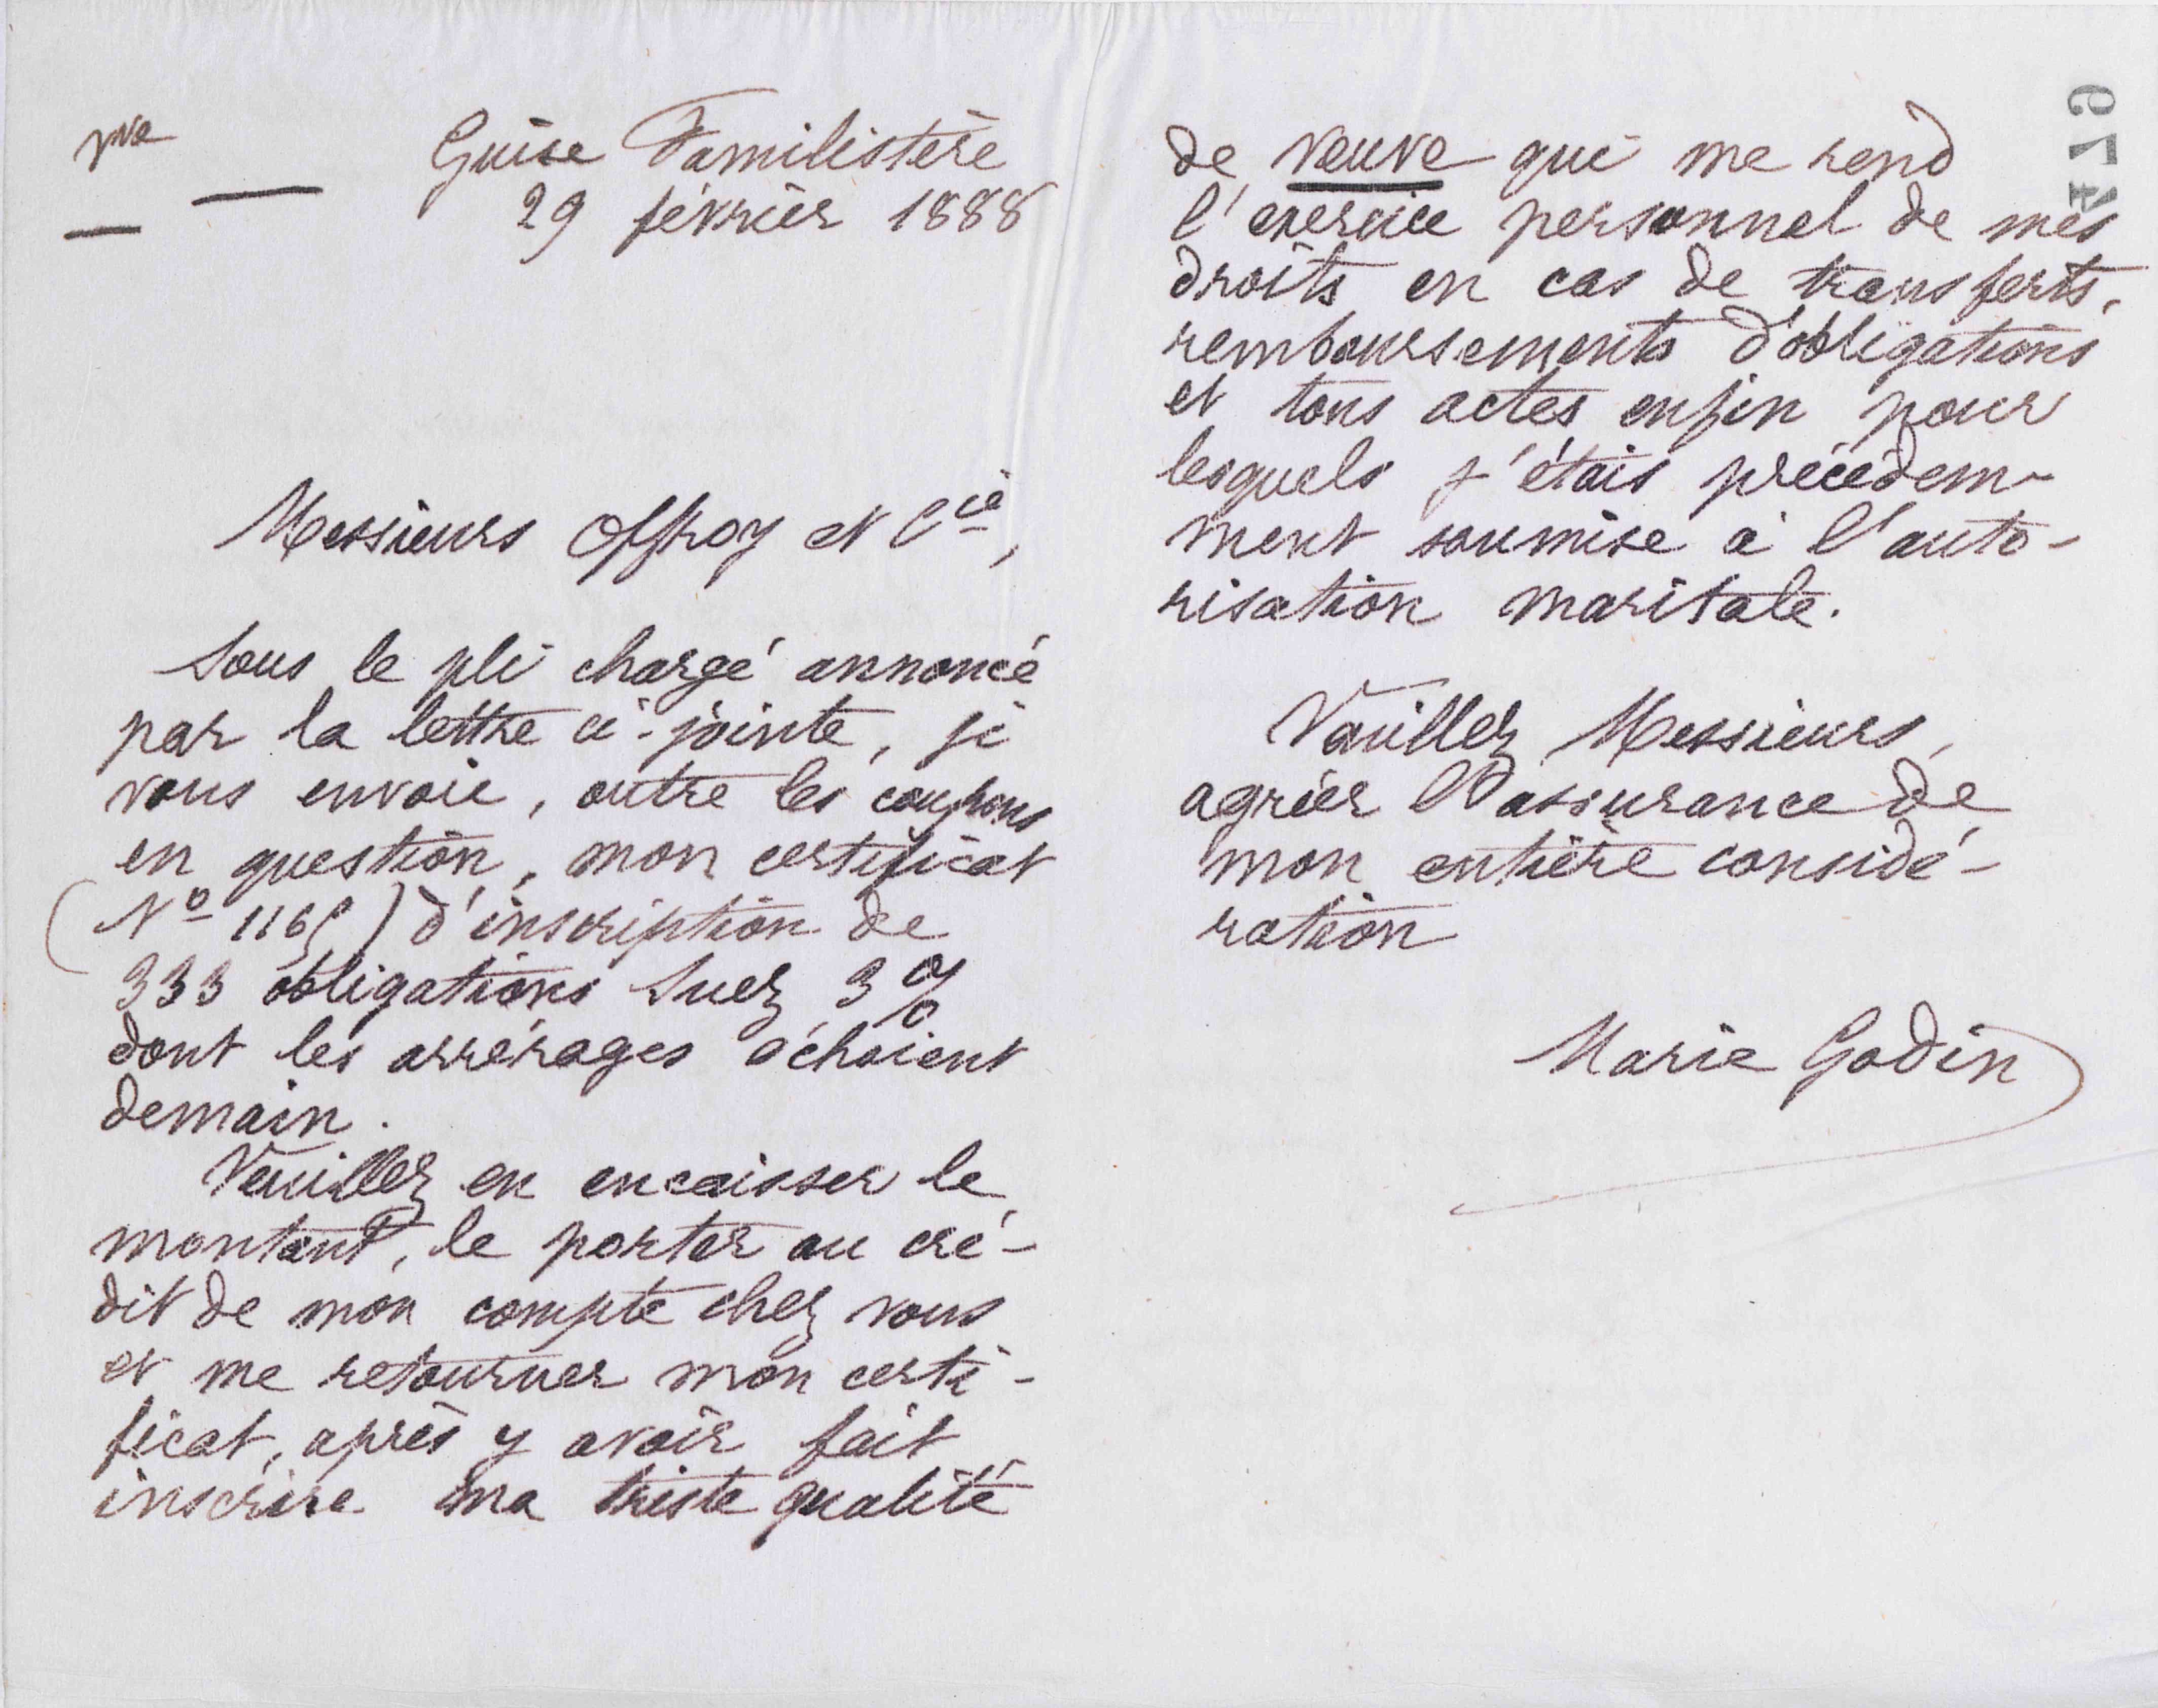 pve
Guise Familistère
29 février 1888
Messieurs Offroy et Cie,
Sous le pli chargé annoncé
par la lettre ci-jointe, je
vous envoie, outre les coupons
en question, mon certificat
(No 1165) d'inscription de
333 obligations Suez 3%
dont les arrérages échoient
demain.
Veuillez en encaisser le
montant, le porter au cré-
dit de mon compte chez vous
et me retourner mon certi-
ficat, après y avoir fait
inscrire ma triste qualité
679
de veuve qui me rend
l'exercice personnel de mes
droits en cas de transferts,
remboursements d'obligations
et tous actes enfin pour
lesquels j'étais précédem-
ment soumise à l'auto-
risation maritale.
Veuillez, Messieurs,
agréer l'assurance de
mon entière considé-
ration
Marie Godin